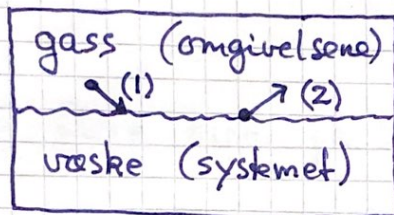 gass (omgivelsene)
(1) (2)
væske (systemet)